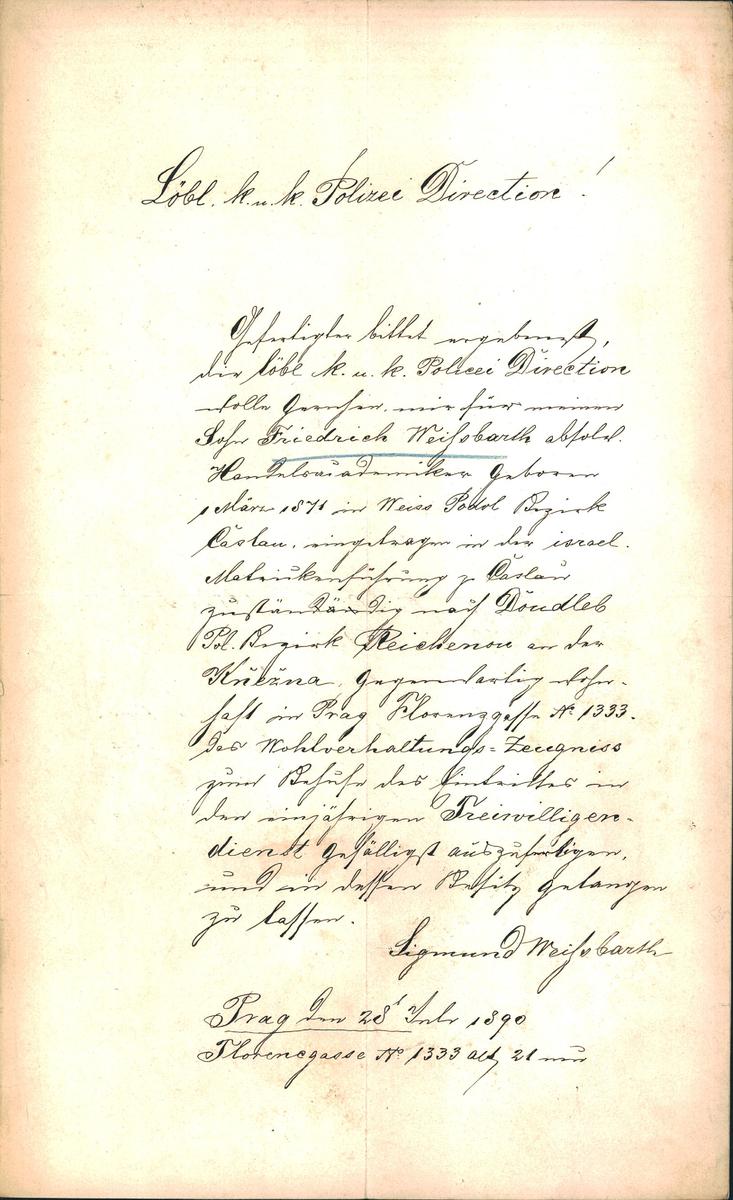 Löbl. k. u. k. Polizei Direction!
Gefertigter bittet ergebenst,
die löbl k. u. k. Policei Direction
wolle geruhen, mir für meinen
Sohn Friedrich Weißbarth absolv.
Handelsacademiker geboren
1 März 1871 in Weiss Podol Bezirk
Časlau, eingetragen in der israel.
Matrikenführung zu Časlau
zuständig nach Doudleb
Pol. Bezirk Reichenau an der
Kněžna, gegenwärtig wohn-
haft in Prag Florenzgasse No 1333.
das Wohlverhaltungs-Zeugniss
zum Behufe des Eintrittes in
den einjährigen Freiwilligen-
dienst gefälligst auszufertigen,
und in dessen Besitz gelangen
zu lassen.
Sigmund Weißbarth
Prag den 28t 1890
Florencgasse No 1333 alt, 21 neu